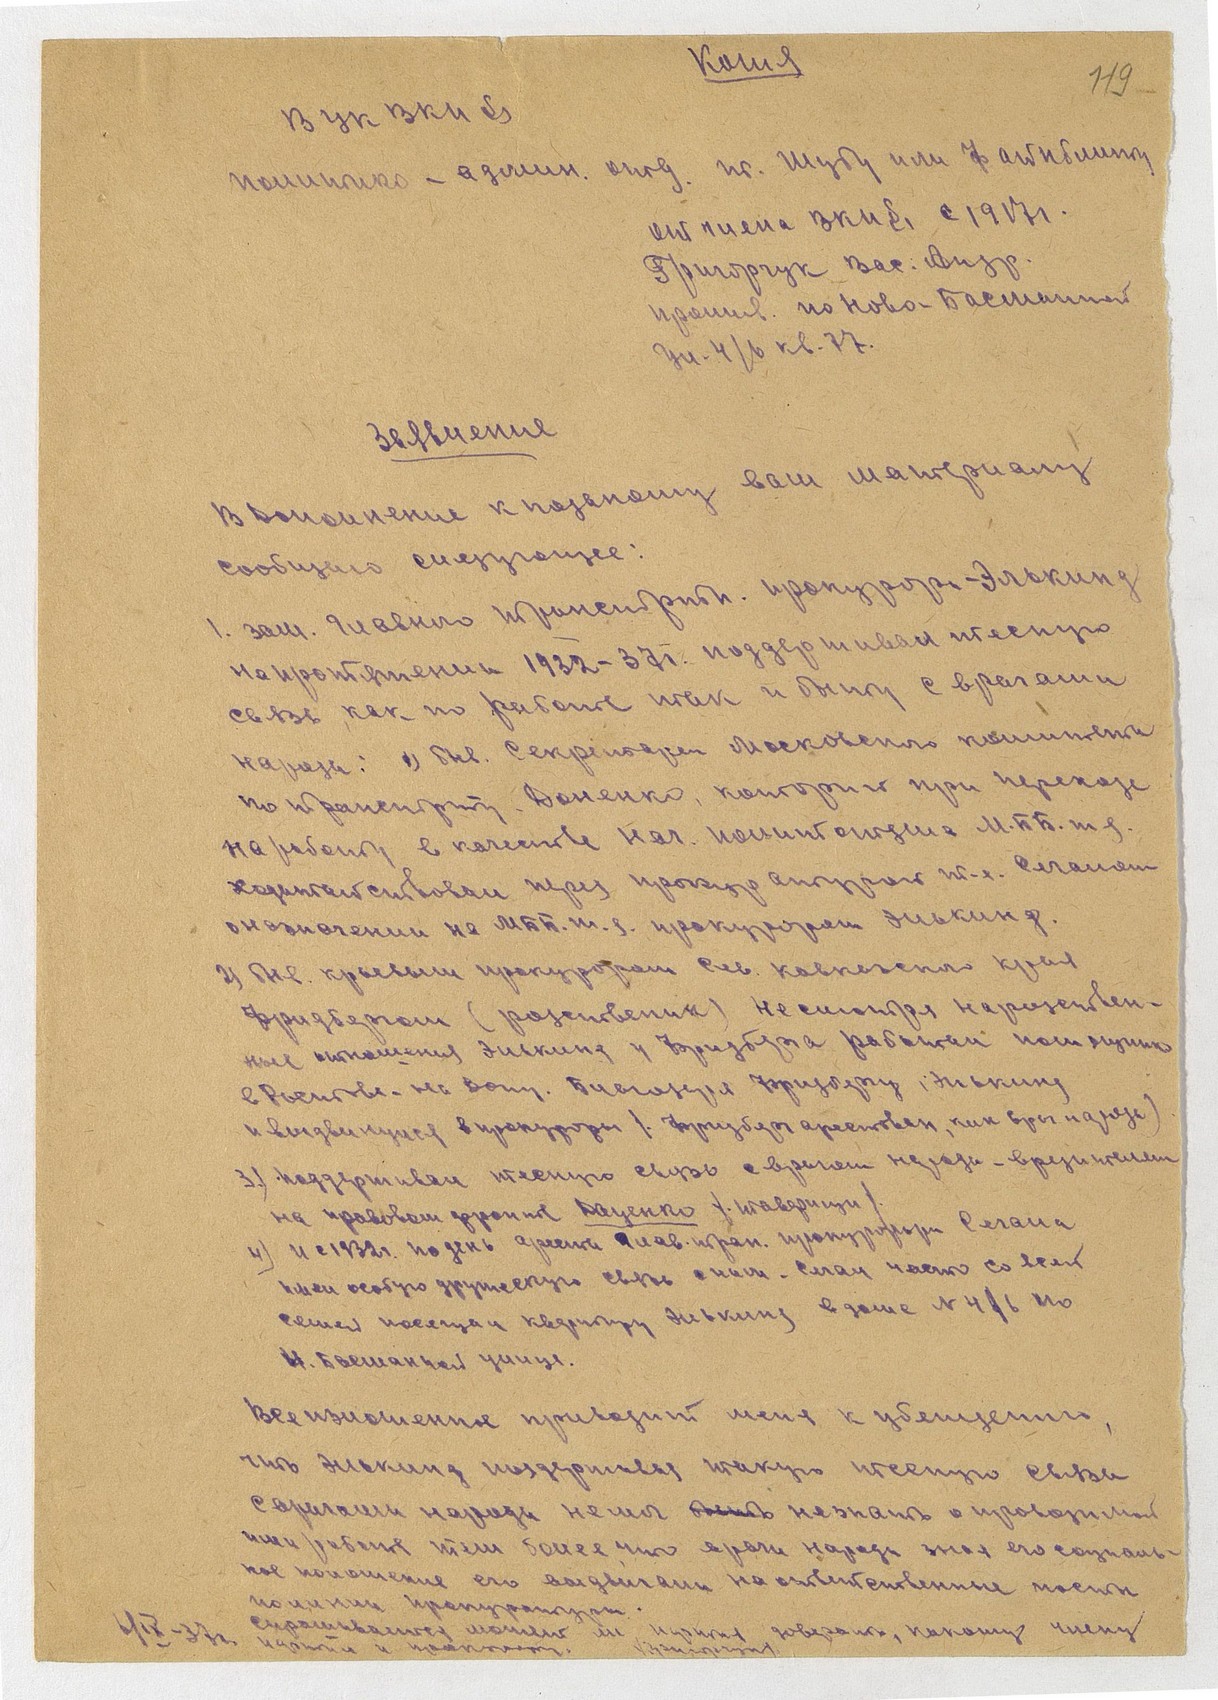 Копия
119
В ЦК ВКП б)
политико – админ. отд. т.
от члена ВКПб, с 1917 г.
Григорчук Вас. Андр.
прожив. по Ново-Басманной
ул. 4/6 кв. 77.
Заявление
В дополнение к поданому вам материалу
сообщаю следующее:
1. зам. Главного транспортн. прокурора – Элькинд
на протяжении 1932–37 г. поддерживал тесную
связь как по работе так и быту с врагами
народа: 1) быв. Секретарем Московского комитета
по транспорту Доненко, который при переходе
на работу в качестве нач. политотдела М.ББ. ж.д.
ходатайствовал перед прокуратурой т-е. Сегалом
о назначении на МББ. ж.д. прокурором Элькинд.
2) быв. краевым прокурором Сев. Кавказского края
Фридбергом (родственник) несмотря на родствен-
ные отношения Элькинд у Фридберга работал помощником
в Ростове-на Дону. Благодаря Фридбергу, Элькинд
и выдвинулся в прокуроры /. Фридберг арестован, как враг народа)
3.) поддерживал тесную связь с врагом народа – вредителем
на правовом фронте Баценко /. товарищи /.
4) И с 1932 г. по день ареста Глав. тран. прокурора Сегала
имел особую дружескую связь с ним – Сегал часто со всей
семьей посещал квартиру Элькинд в доме № 4/6 по
Н. Басманной улице.
Все изложенное приводит меня к убеждению,
что Элькинд поддерживая такую тесную связь
с врагами народа не мог не знать о проводимой
ими работе тем более, что враги народа зная его социаль-
ное положение его выдвигали на ответственные посты
по линии прокуратуры.
6/IX – 37 г. спрашивается может ли партия доверять, такому члену
партии и прокурору.